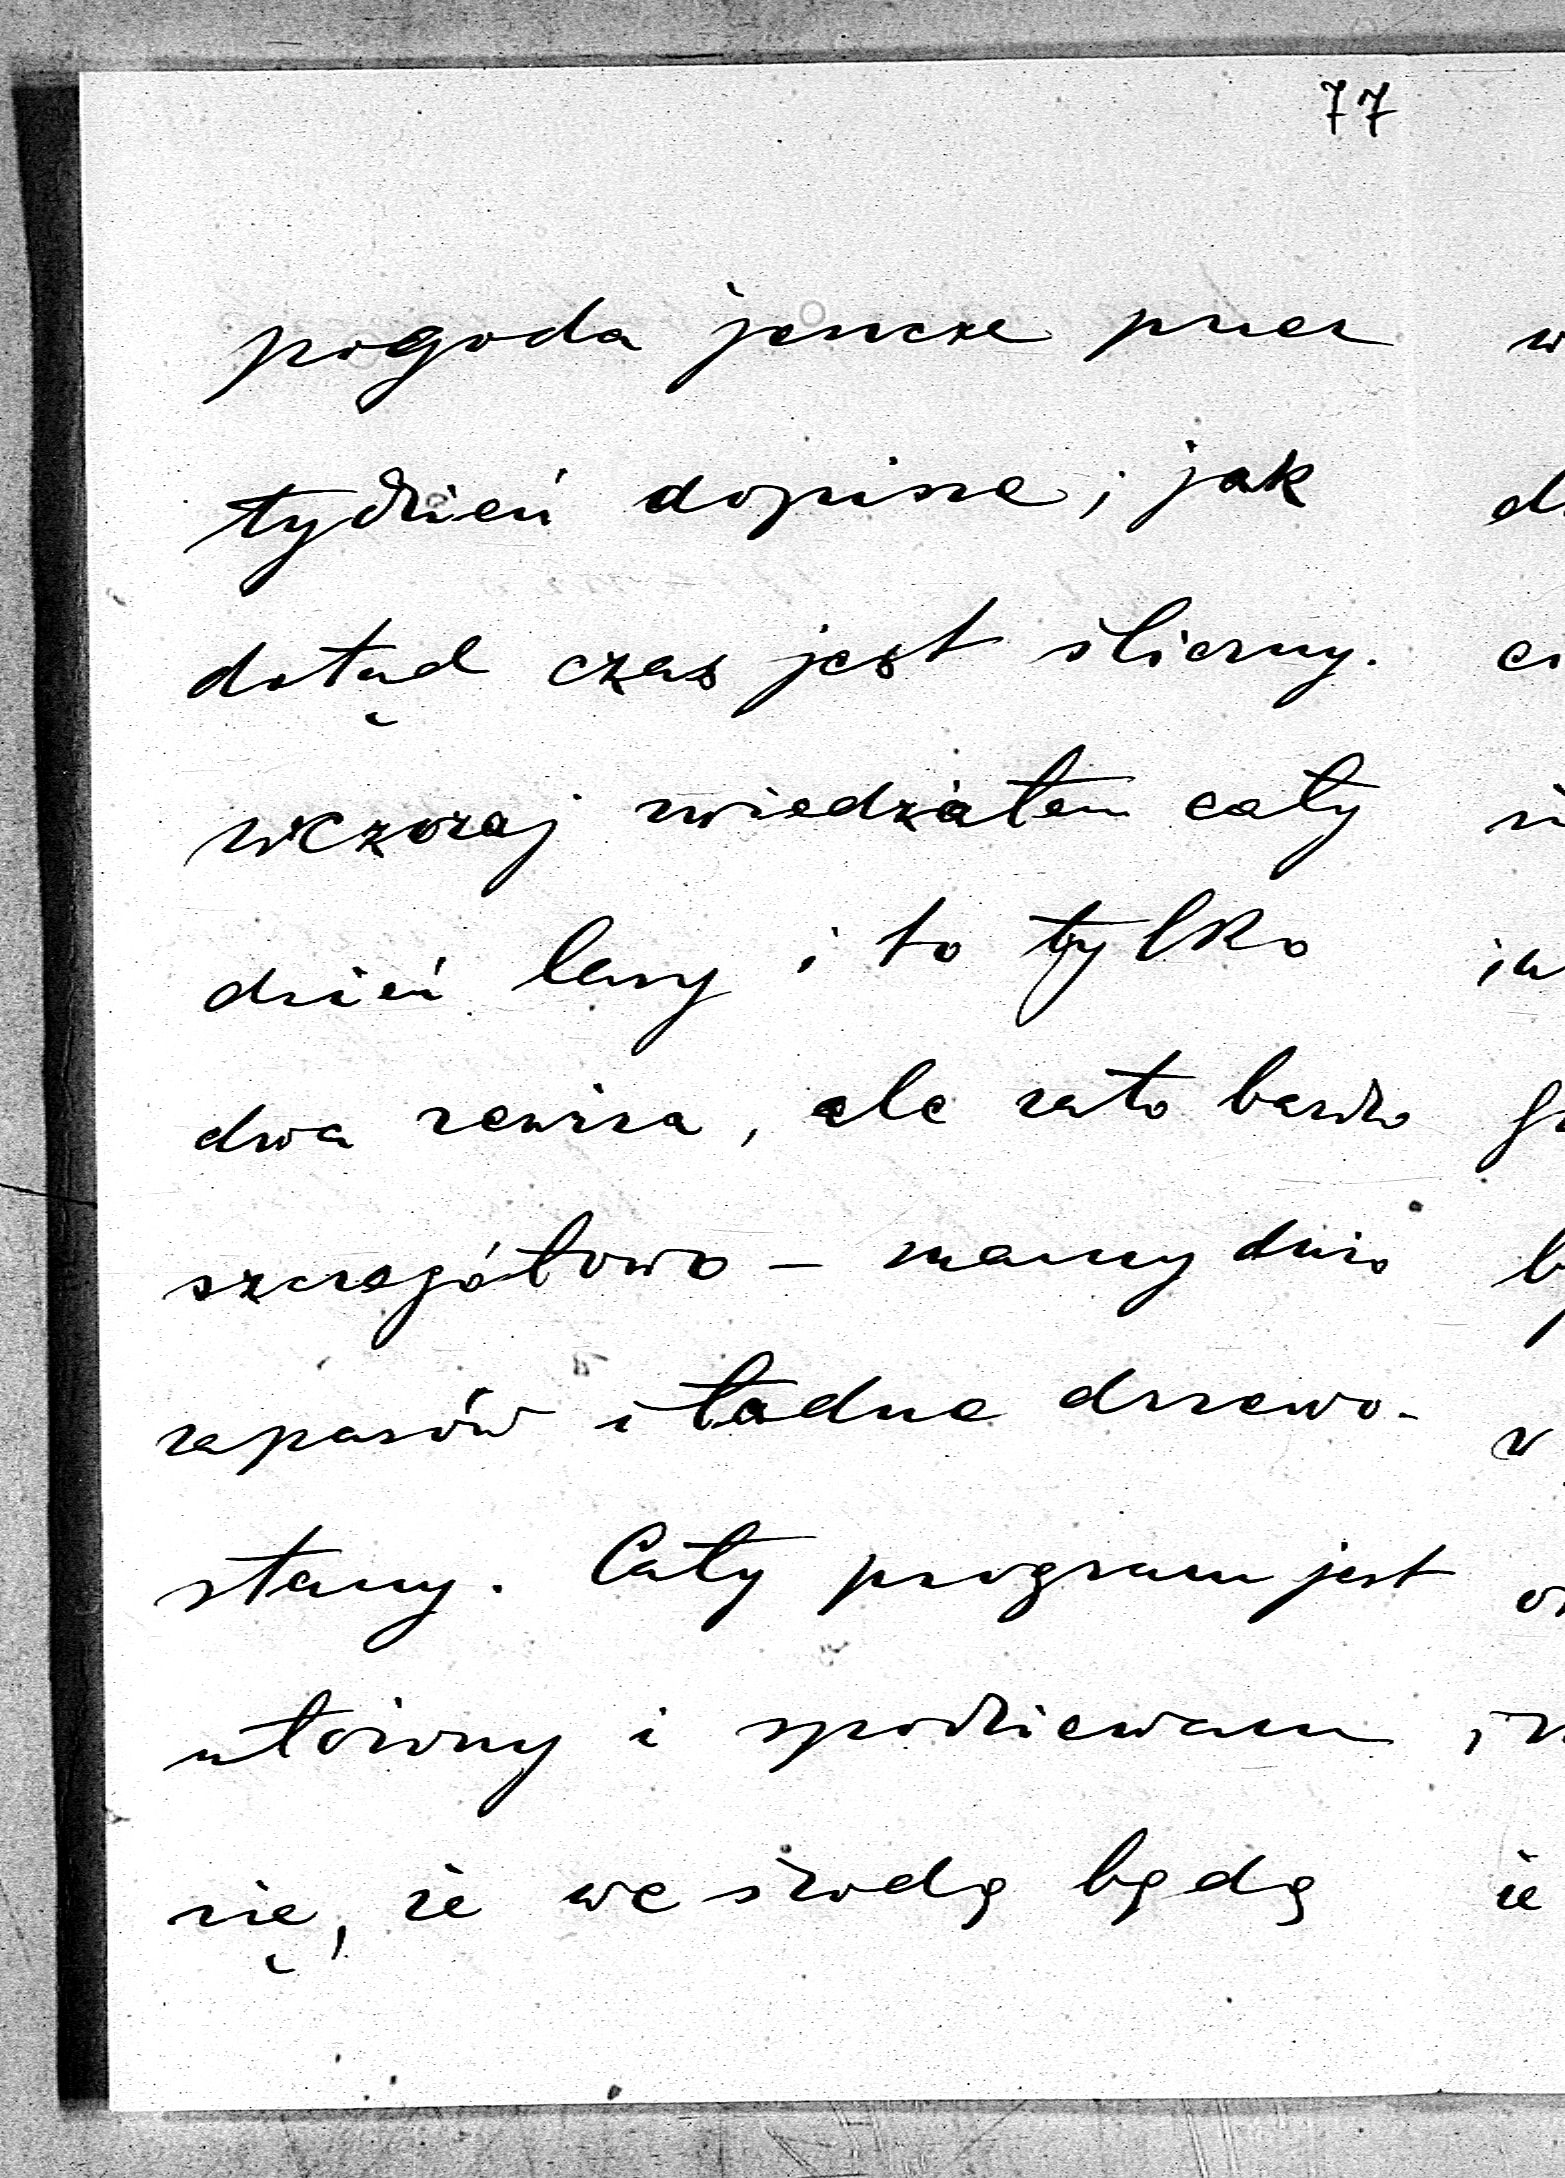 77
pogoda jeszcze przez
tydzień dopisze, jak
dotąd czas jest śliczny.
wczoraj zwiedzałem cały
dzień lasy i to tylko
dwa rewiza, ale zato bardzo
szczegółowo - mamy dużo
zapasów i ładne drzewo-
stany. Cały program jest
ułożony i spodziewam
się, że we środę będę